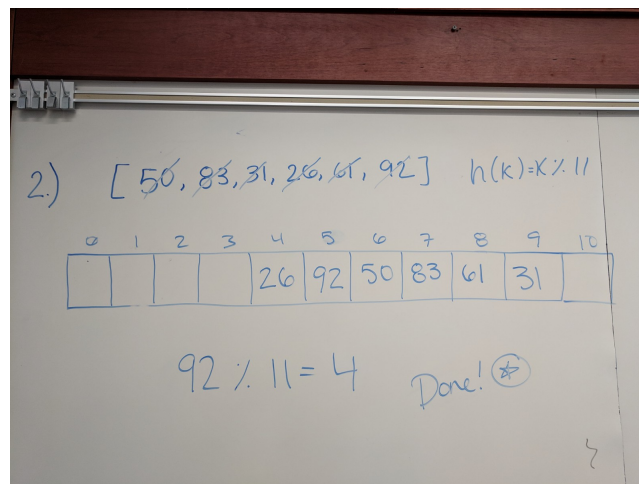 2.) [50, 83, 31, 26, 61, 92] h(k)=k % 11
0 1 2 3 4 5 6 7 8 9 10
26 92 50 83 61 31
92 % 11 = 4
Done!